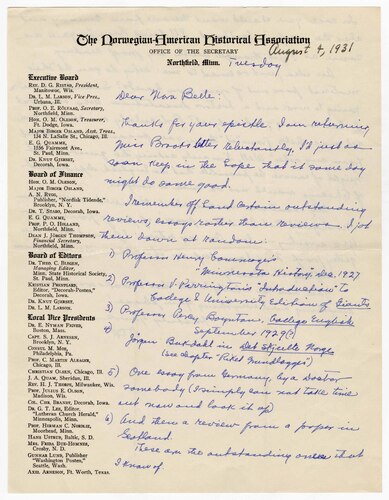 The Norwegian-American Historical Association
OFFICE OF THE SECRETARY
Northfield, Minn.
August 4, 1931
Tuesday
Executive Board
REV. D. G. RISTAD, President,
Manitowoc, Wis.
DR. L. M. LARSON, Vice Pres.,
Urbana, Ill.
PROF. O. E. RÖLVAAG, Secretary,
Northfield, Minn.
HON. O. M. OLESON, Treasurer,
Ft. Dodge, Iowa.
MAJOR BIRGER OSLAND, Asst. Treas.,
134 N. LaSalle St., Chicago, Ill.
E. G. QUAMME,
1356 Fairmount Ave.,
St. Paul, Minn.
DR. KNUT GJERSET,
Decorah, Iowa.
Board of Finance
HON. O. M. OLESON,
MAJOR BIRGER OSLAND,
A. N. RYGG,
Publisher, "Nordisk Tidende,"
Brooklyn, N. Y.
DR. T. STABO, Decorah, Iowa.
E. G. QUAMME,
St. Paul, Minn.
PROF. P. O. HOLLAND,
Northfield, Minn.
DEAN J. JÖRGEN THOMPSON,
Financial Secretary,
Northfield, Minn.
Board of Editors
DR. THEO. C. BLEGEN,
Managing Editor,
Minn. State Historical Society,
St. Paul, Minn.
KRISTIAN PRESTGARD,
Editor, "Decorah-Posten,"
Decorah, Iowa.
DR. KNUT GJERSET,
DR. L. M. LARSON.
Local Vice Presidents
DR. E. NYMAN FIGVED,
Boston, Mass.
CAPT. S. J. ARNESEN,
Brooklyn, N. Y.
CONSUL M. MOE,
Philadelphia, Pa.
PROF. C. MARTIN ALSAGER,
Chicago, Ill.
CHRISTIAN OLSEN, Chicago, Ill.
J. A. QUAM, Sheridan, Ill.
REV. H. J. THORPE, Milwaukee, Wis.
PROF. JULIUS E. OLSON,
Madison, Wis.
COL. CHR. BRANDT, Decorah, Iowa.
DR. G. T. LEE, Editor,
"Lutheran Church Herald,"
Minneapolis, Minn.
PROF. HERMAN C. NORDLIE,
Moorhead, Minn.
HANS USTRUD, Baltic, S. D.
MRS. FRIDA BUE-HOMNES,
Crosby, N. D.
GUNNAR LUND, Publisher
"Washington Posten,"
Seattle, Wash.
AXEL ARNESON, Ft. Worth, Texas.
Dear Nora Belle:
Thanks for your epistle. I am returning
Miss Brooks letter reluctantly, I'd just as
soon keep in the hope that it some day
might do some good.
I remember off hand certain outstanding
reviews, essays rather than reviews. I jot
them down at random:
1) Professor Henry Commager's
"Minnesota History, Dec. 1927
2) Professor V. Parrington's "Introduction" to
College & University Edition of Giants
3) Professor Percy Boynton, College English
September 1929(?)
4) Jörgen Bukdahl in Det Skjulte Norge
(see Chapter Pikel Mundlagges)
5) One essay from Germany, by a Doctor
somebody (I simply can not take time
out now and look it up)
6) And then a review from a paper in
Scotland.
These are the outstanding ones that
I know of.